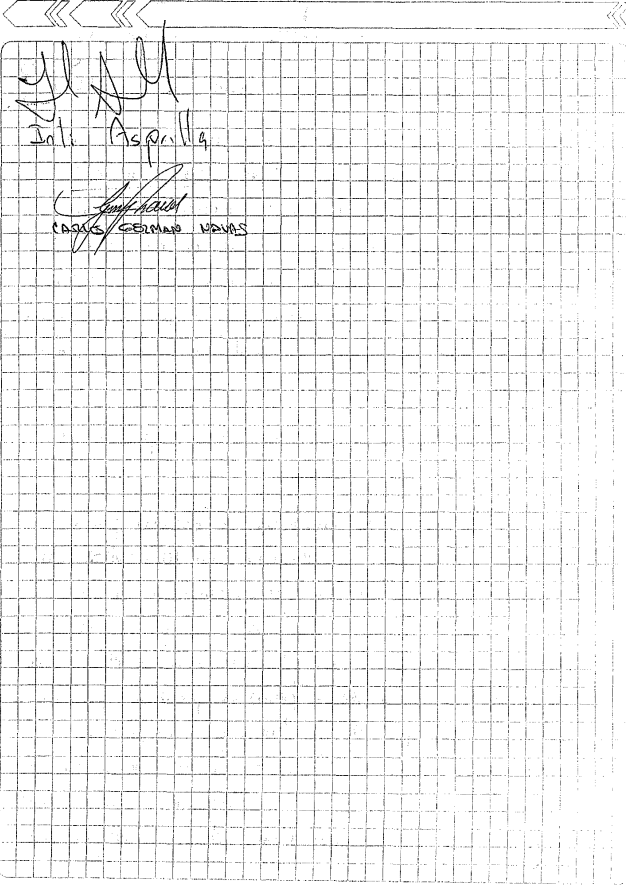 Inti Asprilla
CARLOS GERMAN NAVAS